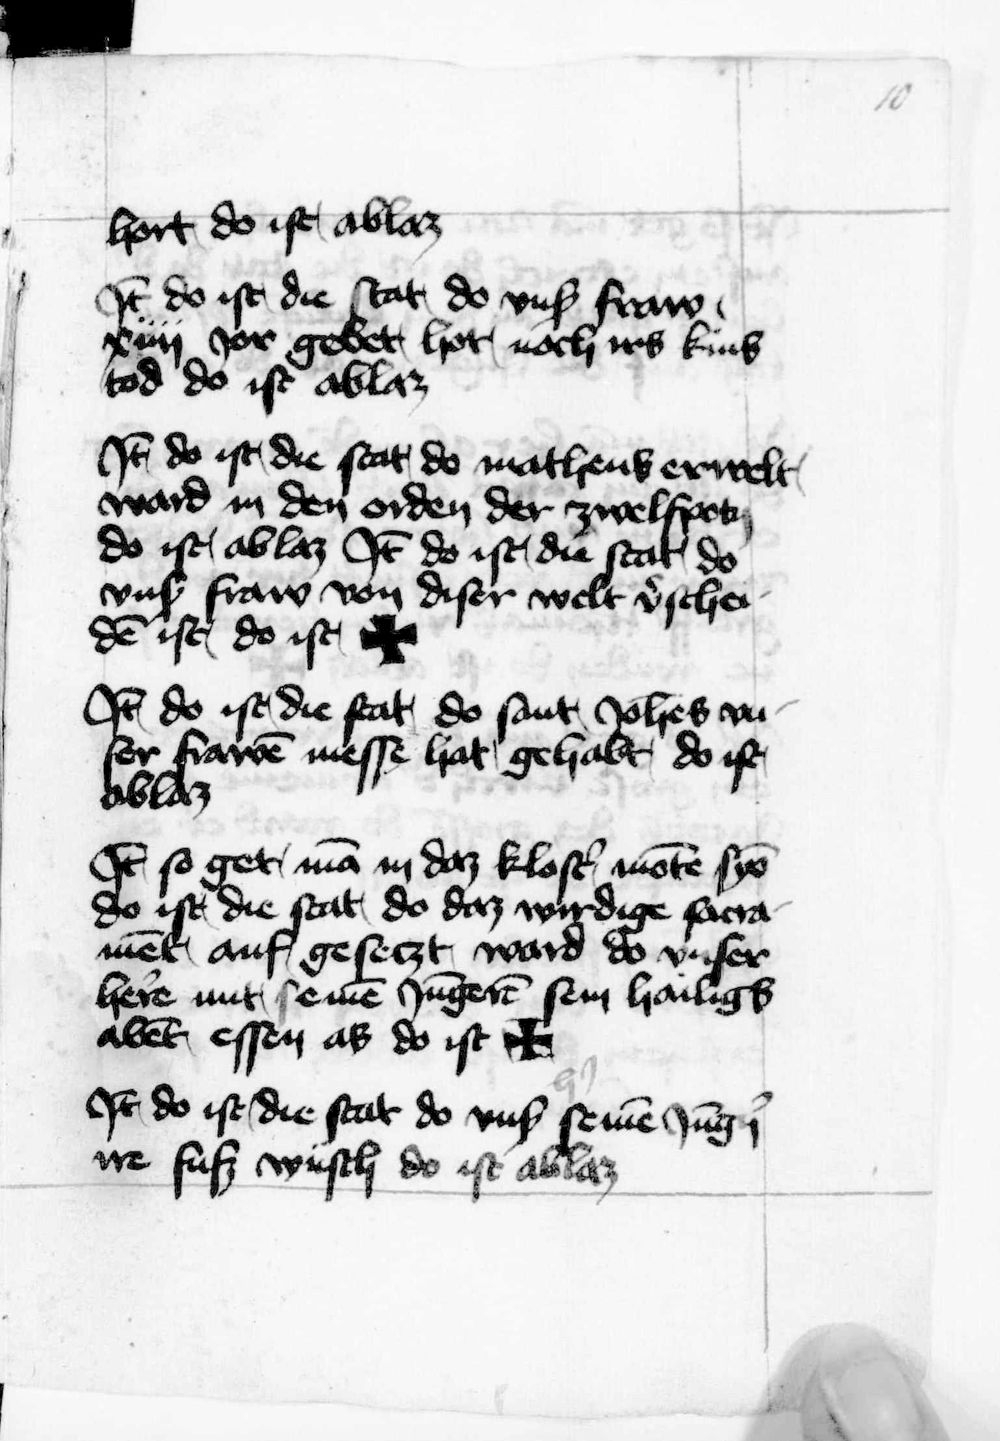 10
hort do ist ablaz
It̄ do ist die stat do vnsʼ fraw
xiiii Jor gebet hot noch irs kins
tod do ist ablaz
It̄ do ist die stat do matheus erwelt
ward in den orden der zwelfpotn
do ist ablaz It̄ do ist die stat do
vnsʼ fraw von diser welt vʼschei-
dē ist do ist ✠
It̄ do ist die stat do sant Johēs vn-
ser frawē messe hat gehabt do ist
ablaz
It̄ so get mā in daz klostʼ mōte syō
do ist die stat do daz wirdige sacra-
mēt auf gesetzt ward do vnser
herʼe mit seinē Jūgerē sein hailigs
abēt essen as do ist ✠
hʼ
It̄ do ist die stat do vnsʼ seinē Jūgʼn
ire fuſz wusch do ist ablaz